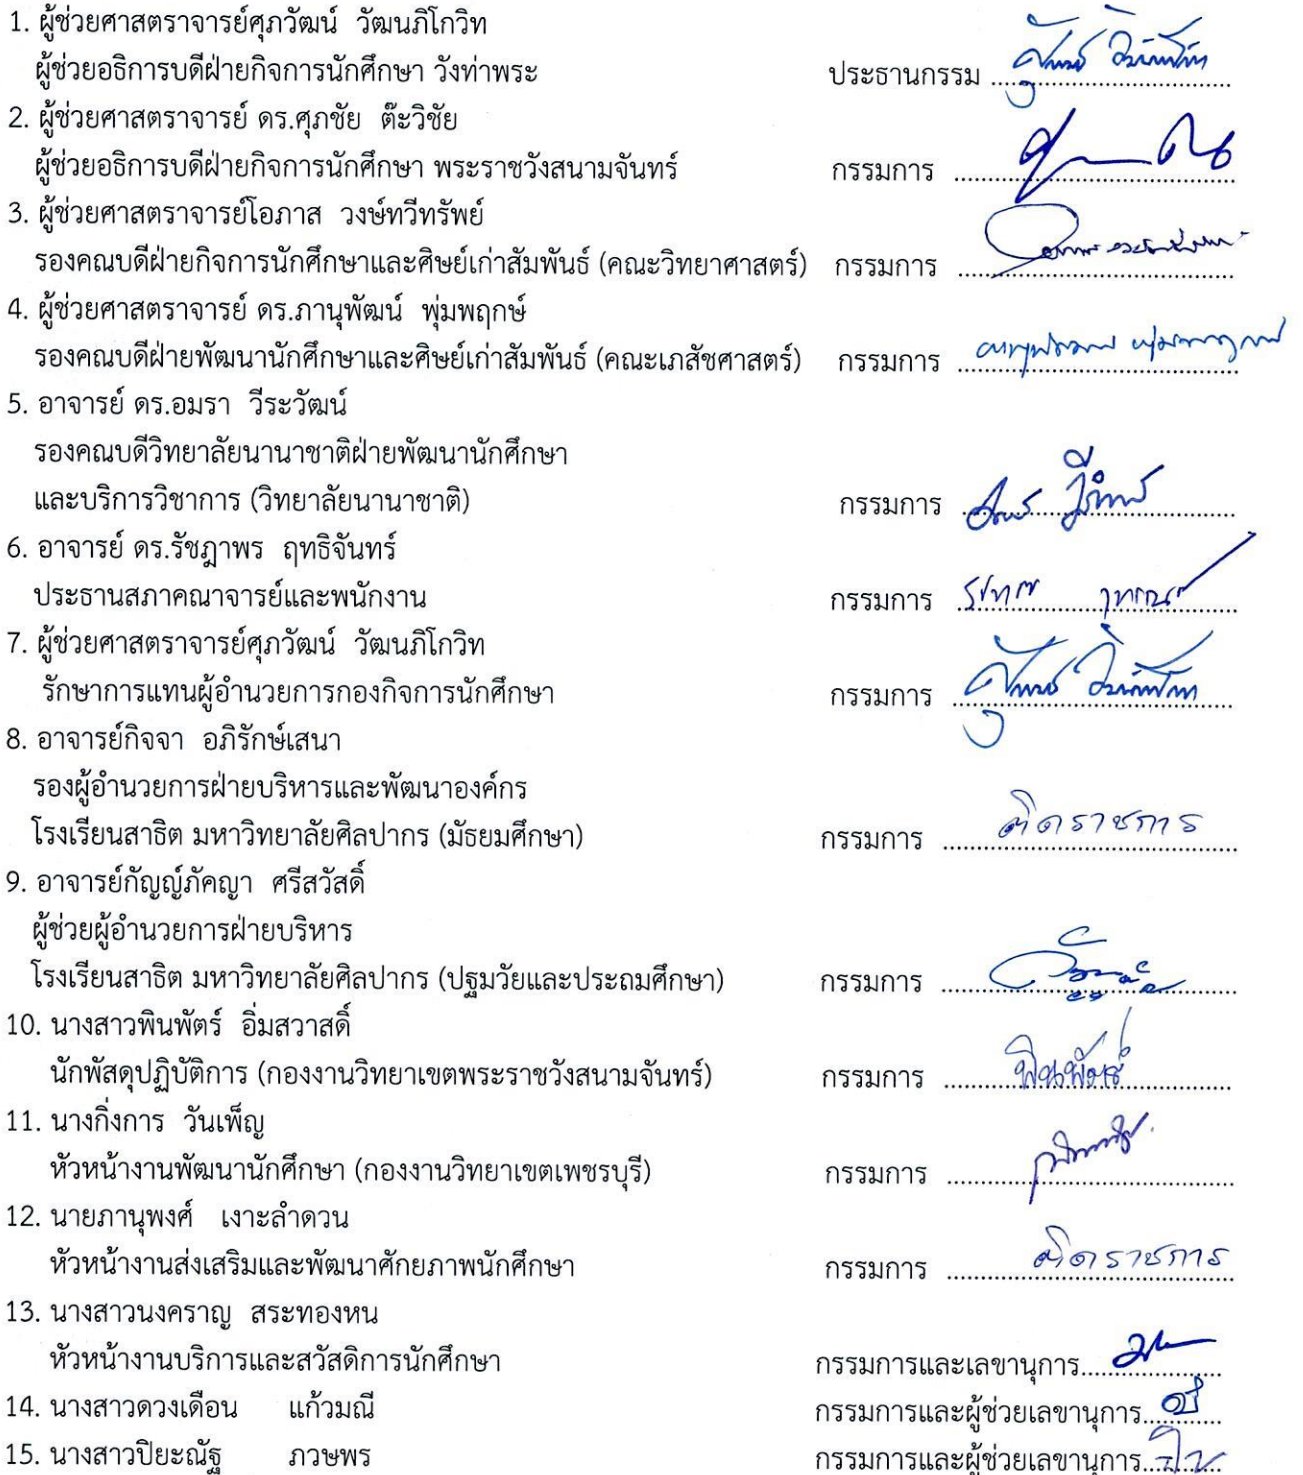 1. ผู้ช่วยศาสตราจารย์ศุภวัฒน์ วัฒนภิโกวิท
ผู้ช่วยอธิการบดีฝ่ายกิจการนักศึกษา วังท่าพระ ประธานกรรม
2. ผู้ช่วยศาสตราจารย์ ดร.ศุภชัย ต๊ะวิชัย
ผู้ช่วยอธิการบดีฝ่ายกิจการนักศึกษา พระราชวังสนามจันทร์ กรรมการ
3. ผู้ช่วยศาสตราจารย์โอภาส วงษ์ทวีทรัพย์
รองคณบดีฝ่ายกิจการนักศึกษาและศิษย์เก่าสัมพันธ์ (คณะวิทยาศาสตร์) กรรมการ
4. ผู้ช่วยศาสตราจารย์ ดร.ภานุพัฒน์ พุ่มพฤกษ์
รองคณบดีฝ่ายพัฒนานักศึกษาและศิษย์เก่าสัมพันธ์ (คณะเภสัชศาสตร์) กรรมการ
5. อาจารย์ ดร.อมรา วีระวัฒน์
รองคณบดีวิทยาลัยนานาชาติฝ่ายพัฒนานักศึกษา
และบริการวิชาการ (วิทยาลัยนานาชาติ) กรรมการ
6. อาจารย์ ดร.รัชฎาพร ฤทธิจันทร์
ประธานสภาคณาจารย์และพนักงาน กรรมการ
7. ผู้ช่วยศาสตราจารย์ศุภวัฒน์ วัฒนภิโกวิท
รักษาการแทนผู้อำนวยการกองกิจการนักศึกษา กรรมการ
8. อาจารย์กิจจา อภิรักษ์เสนา
รองผู้อำนวยการฝ่ายบริหารและพัฒนาองค์กร
โรงเรียนสาธิต มหาวิทยาลัยศิลปากร (มัธยมศึกษา) กรรมการ ติดราชการ
9. อาจารย์กัญญ์ภัคญา ศรีสวัสดิ์
ผู้ช่วยผู้อำนวยการฝ่ายบริหาร
โรงเรียนสาธิต มหาวิทยาลัยศิลปากร (ปฐมวัยและประถมศึกษา) กรรมการ
10. นางสาวพินพัตร์ อิ่มสวาสดิ์
นักพัสดุปฏิบัติการ (กองงานวิทยาเขตพระราชวังสนามจันทร์) กรรมการ พินพัตร์
11. นางกิ่งการ วันเพ็ญ
หัวหน้างานพัฒนานักศึกษา (กองงานวิทยาเขตเพชรบุรี) กรรมการ
12. นายภานุพงศ์ เงาะลำดวน
หัวหน้างานส่งเสริมและพัฒนาศักยภาพนักศึกษา กรรมการ ติดราชการ
13. นางสาวนงคราญ สระทองหน
หัวหน้างานบริการและสวัสดิการนักศึกษา กรรมการและเลขานุการ
14. นางสาวดวงเดือน แก้วมณี กรรมการและผู้ช่วยเลขานุการ
15. นางสาวปิยะณัฐ ภวษพร กรรมการและผู้ช่วยเลขานุการ